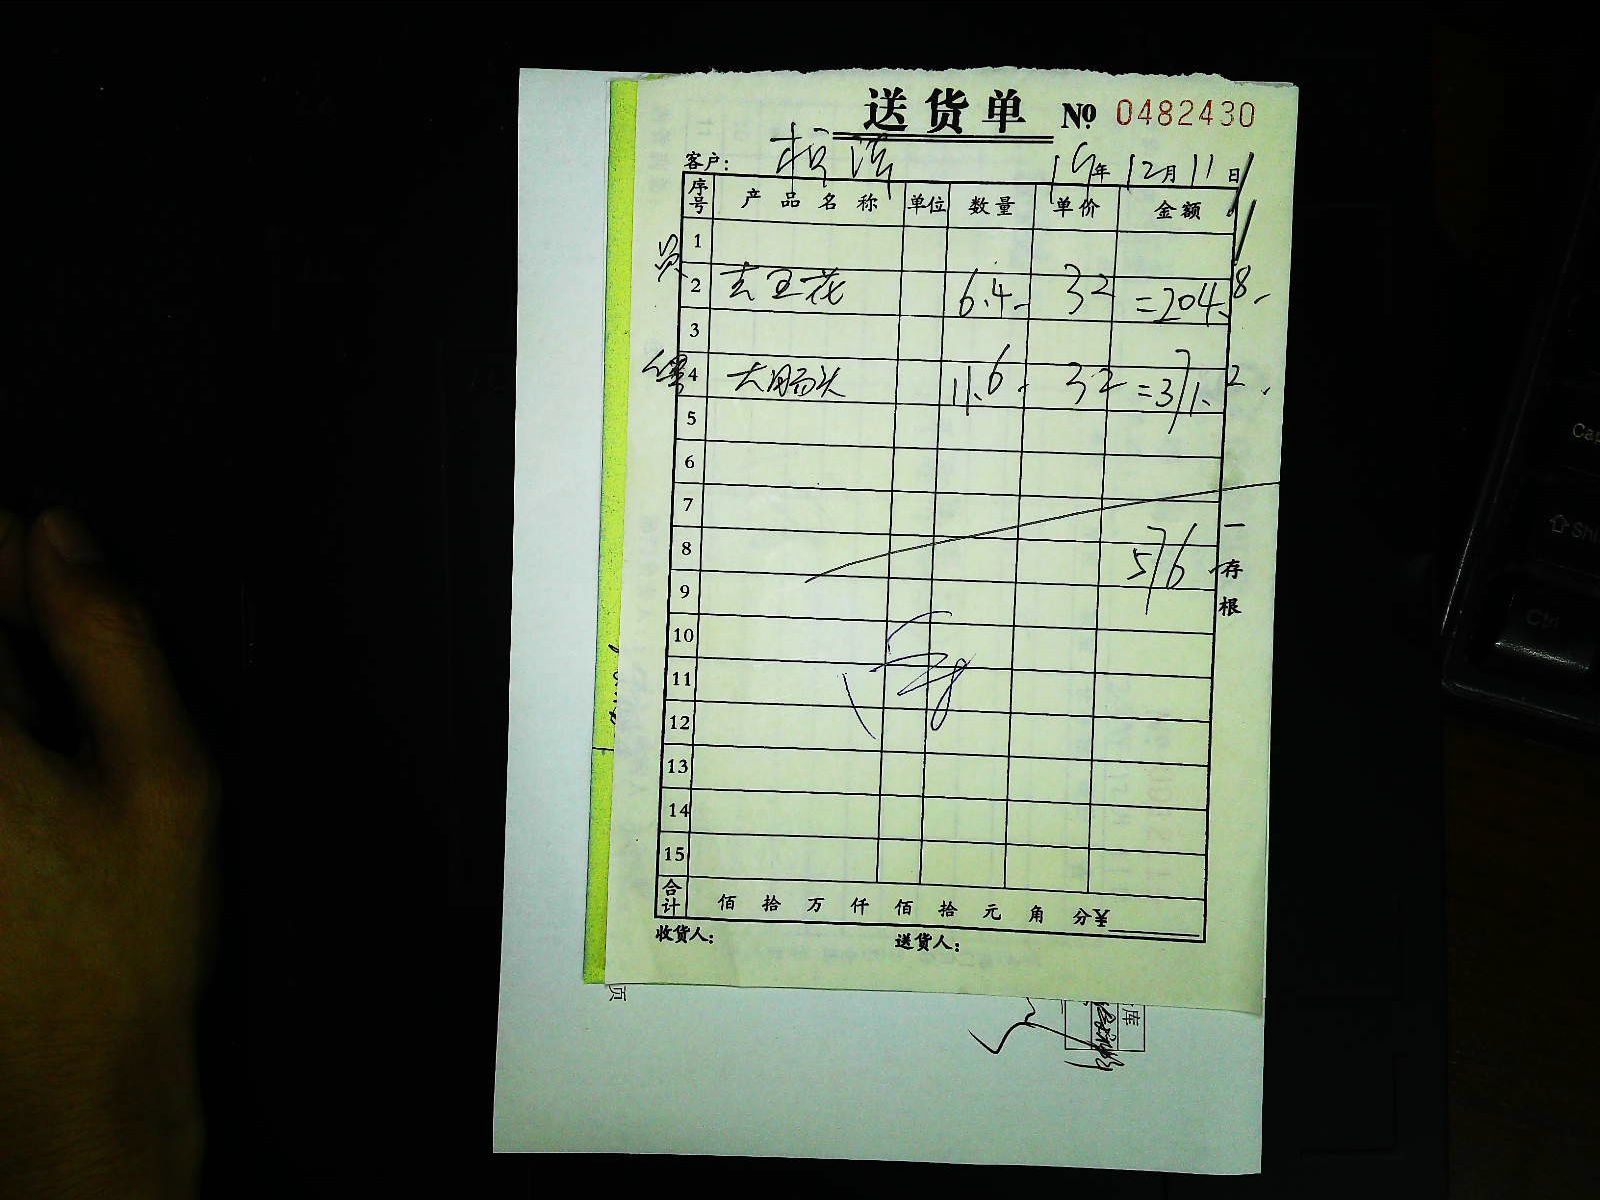 送货单 № 0482430
客户： 年12月11日
序号 产品名称 单位 数量 单价 金额
1
2 6.4 32 =204.8
3
4 大肠头 11.6 32 =371.2
5
6
7
8 576
9
10
11
12
13
14
15
合计 佰 拾 万 仟 佰 拾 元 角 分 ¥
收货人： 送货人：
一存根
页
库